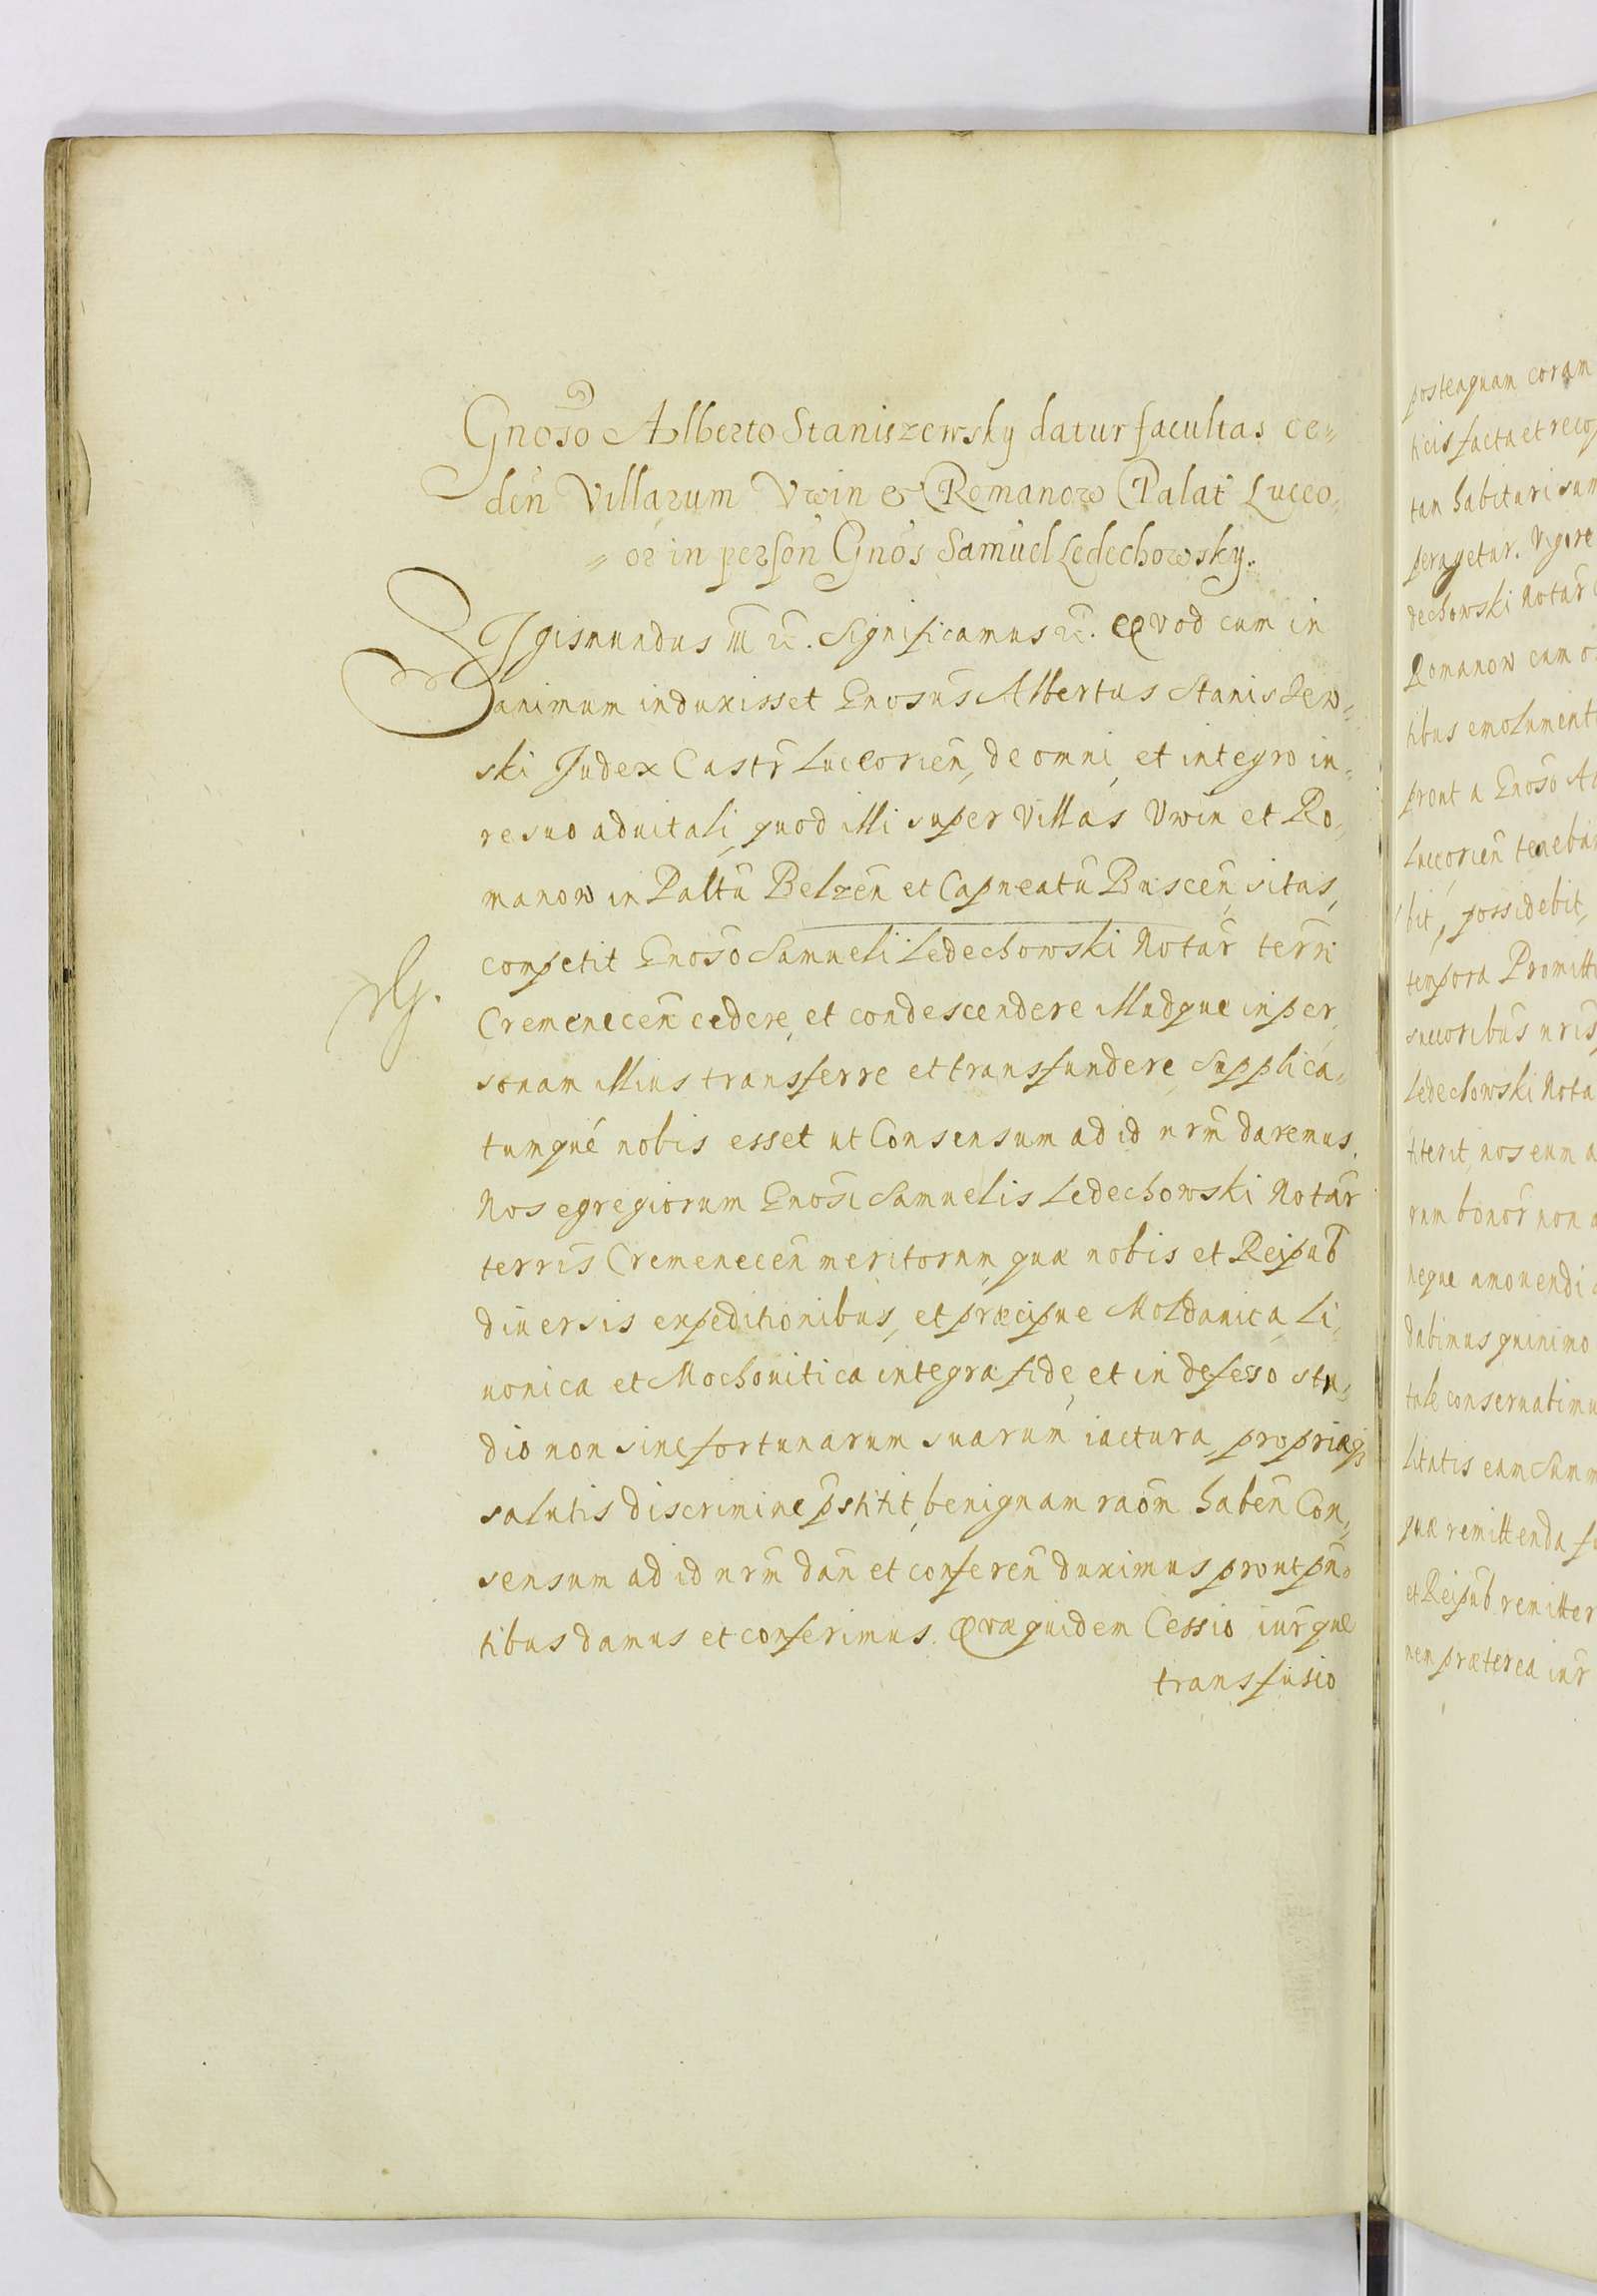 Gnoso Alberto Staniszewsky datur facultas ce=
den Villarum Vwin & Romanow Palat Luceo=
=or in person Gnos Samuel Ledechowsky.
Sigismundus III etc. Significamus etc. Qvod cum in
animum induxisset Gnosus Albertus Staniszew=
ski Judex Castr Luceorien, de omni, et integro iu=
re suo aduitali, quod illi super Villas Vwin et Ro=
manow in Paltu Belzen et Capneatu Buscen, sitas,
competit Gnoso Samueli Ledechowski Notar terri
Cremenecen cedere, et condescendere illudque in per=
sonam illius transferre et transfundere Supplica=
tumque nobis esset ut Consensum ad id nrm daremus.
Nos egregiorum Gnosi Samuelis Ledechowski Notar
terris Cremenecen meritorum, quæ nobis et Reipub
diuersis expeditionibus, et præcipue Moldauica, Li=
uonica et Moschouitica integra fide, et indefesso stu=
dio non sine fortunarum suarum iactura, propriæq;
salutis discrimine pstitit, benignam raom haben Con=
sensum ad id nrm dan et conferen duximus prout pn=
tibus damus et conferimus. Qvæ quidem Cessio iurque
transfusio
posteaquam coram
ticis facta et reco
tan habituri sum
peragetur. Vigore
dechowski Notar
Romanow cum o
tibus emolument
prout a Gnoso Al
Luceorien teneban
bit, possidebit,
tempora Promitti
succoribus nris
Ledechowski Nota
titerit, nos eum a
rum bonor non a
neque amouendi
dabimus quinimo
tale conseruabimu
litatis eam Summ
quæ remittenda fu
et Reipub remitter
nem præterea iur